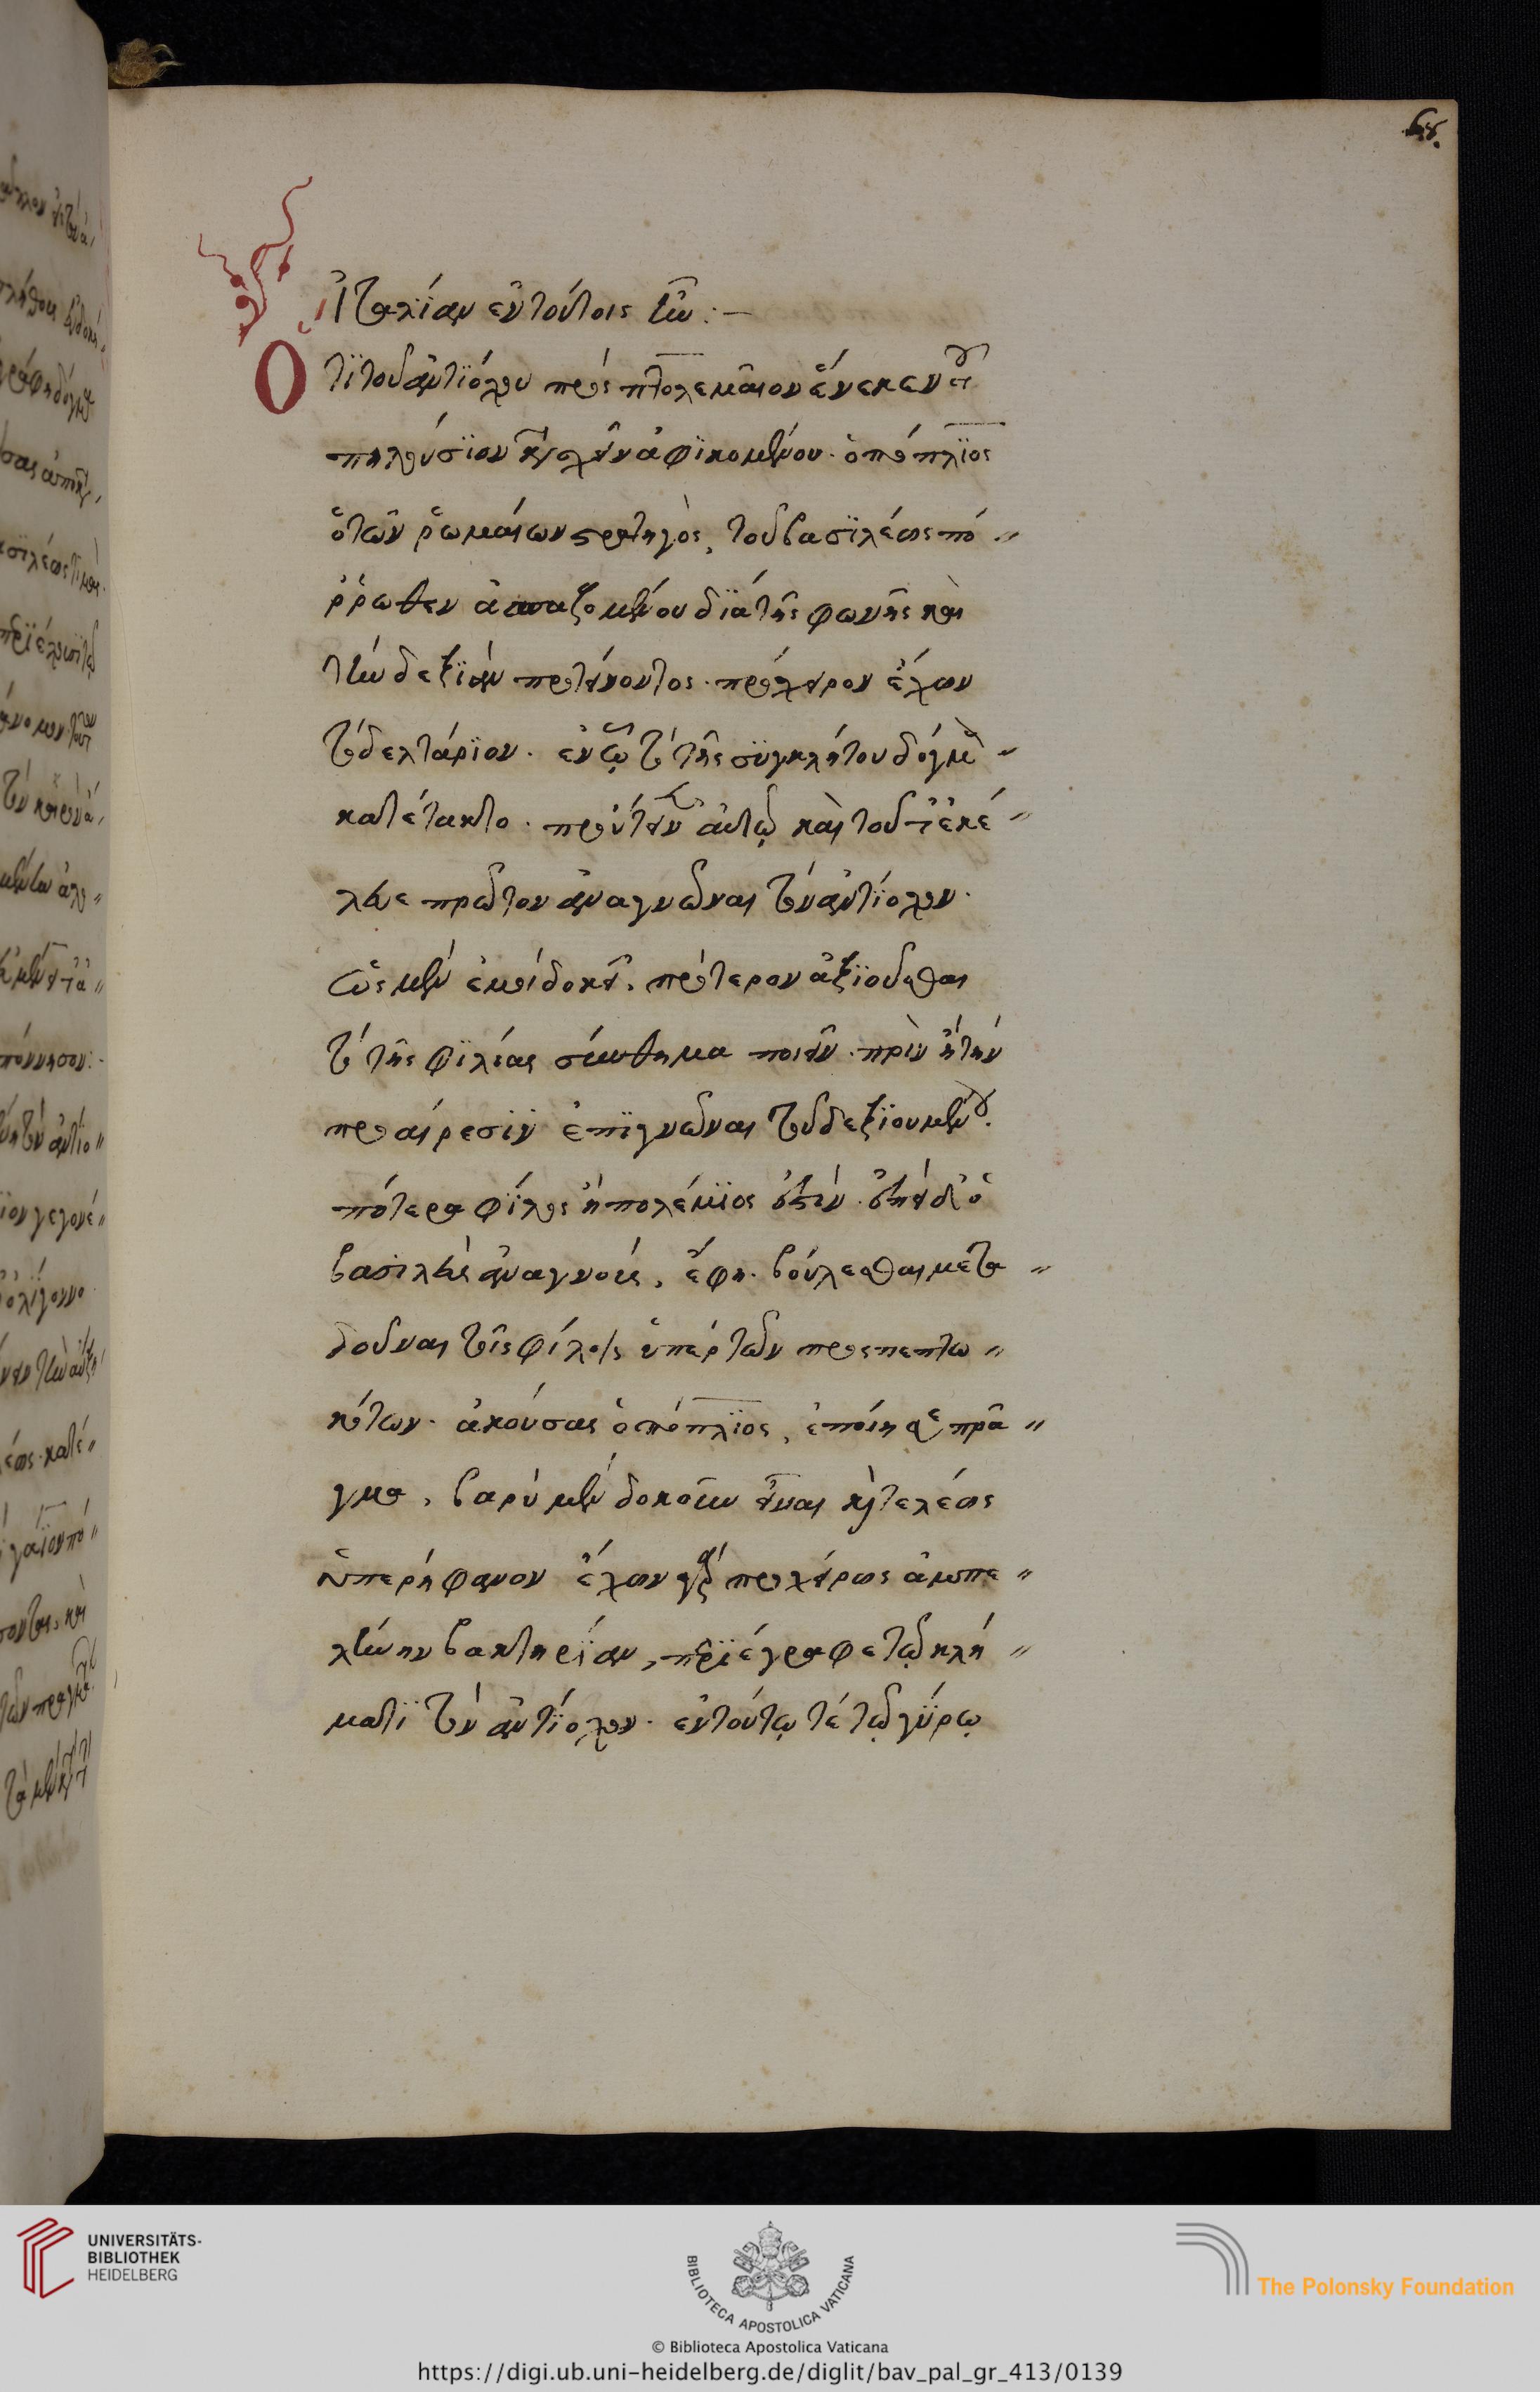 68.
Ἰταλίαν ἐν τούτοις ἦν :–
Ὅτι τοῦ ἀντιόχου πρὸς πτολεμαῖον ἕνεκεν τοῦ
πηλούσιον κατασχεῖν ἀφικομένου. ὁ πόπλιος
ὁ τῶν ῥωμαίων στρατηγὸς, τοῦ βασιλέως πό〃
ρρωθεν ἀσπαζομένου διὰ τῆς φωνῆς καὶ
τὴν δεξιὰν προτείνοντος. πρόχειρον ἔχων
τὸ δελτάριον. ἐν ᾧ τὸ τῆς συγκλήτου δόγμα〃
κατέτακτο. προύτεινεν αὐτῷ καὶ τοῦτ ἐκέ〃
λευε πρῶτον ἀναγνῶναι τὸν ἀντίοχον.
ὡς μὲν ἐμοὶ δοκεῖ, πρότερον ἀξιοῦσθαι
τὸ τῆς φιλίας σύνθημα ποιεῖν. πρὶν ἢ τὴν
προαίρεσιν ἐπιγνῶναι τοῦ δεξιουμένου.
πότερα φίλος ἢ πολέμιος ἐστίν. ἐπεὶ δ ὁ
βασιλεὺς ἀναγνοὺς, ἔφη. βούλεσθαι μετα〃
δοῦναι τοῖς φίλοις ὑπὲρ τῶν προσπεπτω〃
κότων. ἀκούσας ὁ πόπλιος, ἐποίησε πρᾶ〃
γμα, βαρὺ μὲν δοκοῦν εἶναι καὶ τελέως
ὑπερήφανον ἔχων γὰρ προχείρως ἀμπε〃
λίνην βακτηρίαν, περιέγραφε τῷ κλή〃
ματι τὸν ἀντίοχον. ἐν τούτῳ τὲ τῷ γύρῳ
UNIVERSITÄTS-
BIBLIOTHEK
HEIDELBERG
BIBLIOTECA APOSTOLICA VATICANA
The Polonsky Foundation
© Biblioteca Apostolica Vaticana
https://digi.ub.uni-heidelberg.de/diglit/bav_pal_gr_413/0139